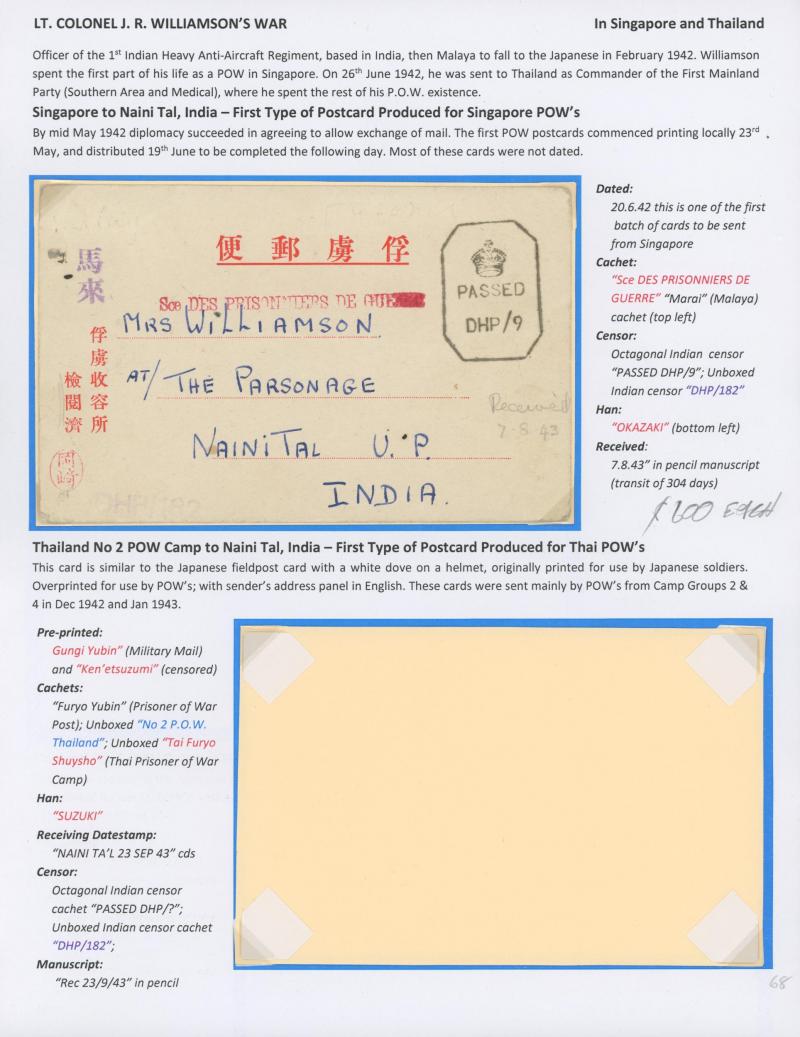 LT. COLONEL J. R. WILLIAMSON'S WAR In Singapore and Thailand
Officer of the 1st Indian Heavy Anti-Aircraft Regiment, based in India, then Malaya to fall to the Japanese in February 1942. Williamson
spent the first part of his life as a POW in Singapore. On 26th June 1942, he was sent to Thailand as Commander of the First Mainland
Party (Southern Area and Medical), where he spent the rest of his P.O.W. existence.
Singapore to Naini Tal, India – First Type of Postcard Produced for Singapore POW's
By mid May 1942 diplomacy succeeded in agreeing to allow exchange of mail. The first POW postcards commenced printing locally 23rd
May, and distributed 19th June to be completed the following day. Most of these cards were not dated.
便郵虜俘
馬來
Sce DES PRISONNIERS DE GUERRE
PASSED
DHP/9
俘虜收容所
檢閱濟
岡崎
MRS WILLIAMSON
AT/ THE PARSONAGE
NAINI TAL U.P.
INDIA.
Received
7-8 43
DHP/182
Dated:
20.6.42 this is one of the first
batch of cards to be sent
from Singapore
Cachet:
"Sce DES PRISONNIERS DE
GUERRE" "Marai" (Malaya)
cachet (top left)
Censor:
Octagonal Indian censor
"PASSED DHP/9"; Unboxed
Indian censor "DHP/182"
Han:
"OKAZAKI" (bottom left)
Received:
7.8.43" in pencil manuscript
(transit of 304 days)
600 EACH
Thailand No 2 POW Camp to Naini Tal, India – First Type of Postcard Produced for Thai POW's
This card is similar to the Japanese fieldpost card with a white dove on a helmet, originally printed for use by Japanese soldiers.
Overprinted for use by POW's; with sender's address panel in English. These cards were sent mainly by POW's from Camp Groups 2 &
4 in Dec 1942 and Jan 1943.
Pre-printed:
Gungi Yubin" (Military Mail)
and "Ken'etsuzumi" (censored)
Cachets:
"Furyo Yubin" (Prisoner of War
Post); Unboxed "No 2 P.O.W.
Thailand"; Unboxed "Tai Furyo
Shuysho" (Thai Prisoner of War
Camp)
Han:
"SUZUKI"
Receiving Datestamp:
"NAINI TA'L 23 SEP 43" cds
Censor:
Octagonal Indian censor
cachet "PASSED DHP/?";
Unboxed Indian censor cachet
"DHP/182";
Manuscript:
"Rec 23/9/43" in pencil
68